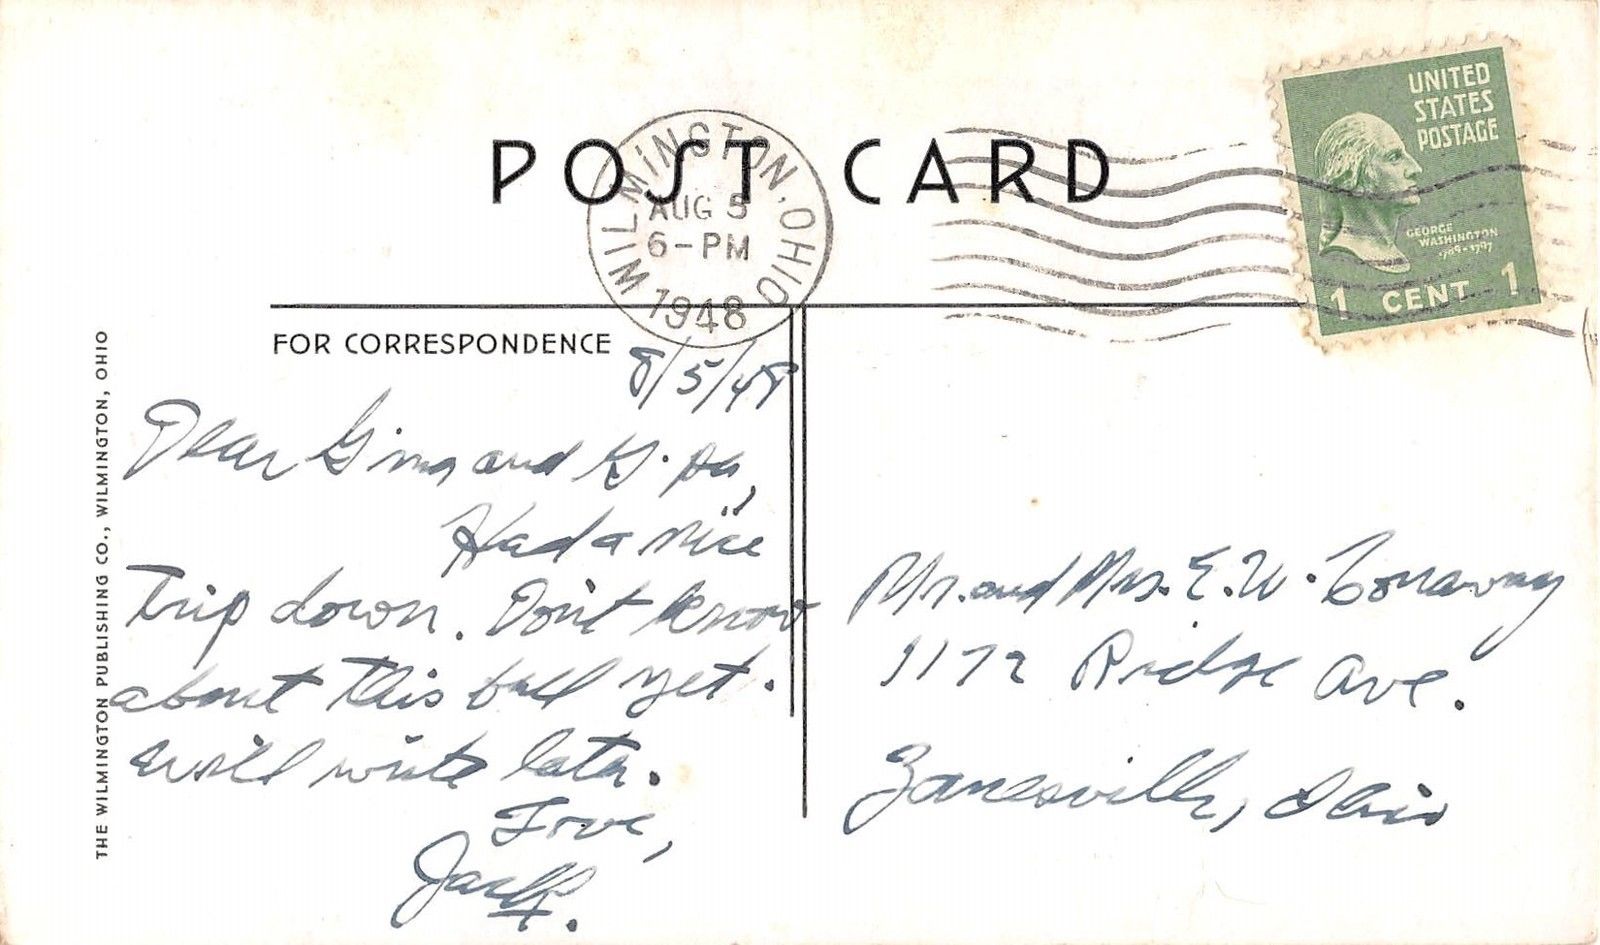 POST CARD
WILMINGTON, OHIO
AUG 5
6-PM
1948
UNITED
STATES
POSTAGE
GEORGE
WASHINGTON
1789-1797
1 CENT 1
FOR CORRESPONDENCE
8/5/48
Dear Gma and G. pa,
Had a nice
trip down. Don't know
about this ball yet.
will write later.
Love,
Jack.
Mr. and Mrs. E. W. Conaway
1172 Ridge Ave.
Zanesville, Ohio
THE WILMINGTON PUBLISHING CO., WILMINGTON, OHIO